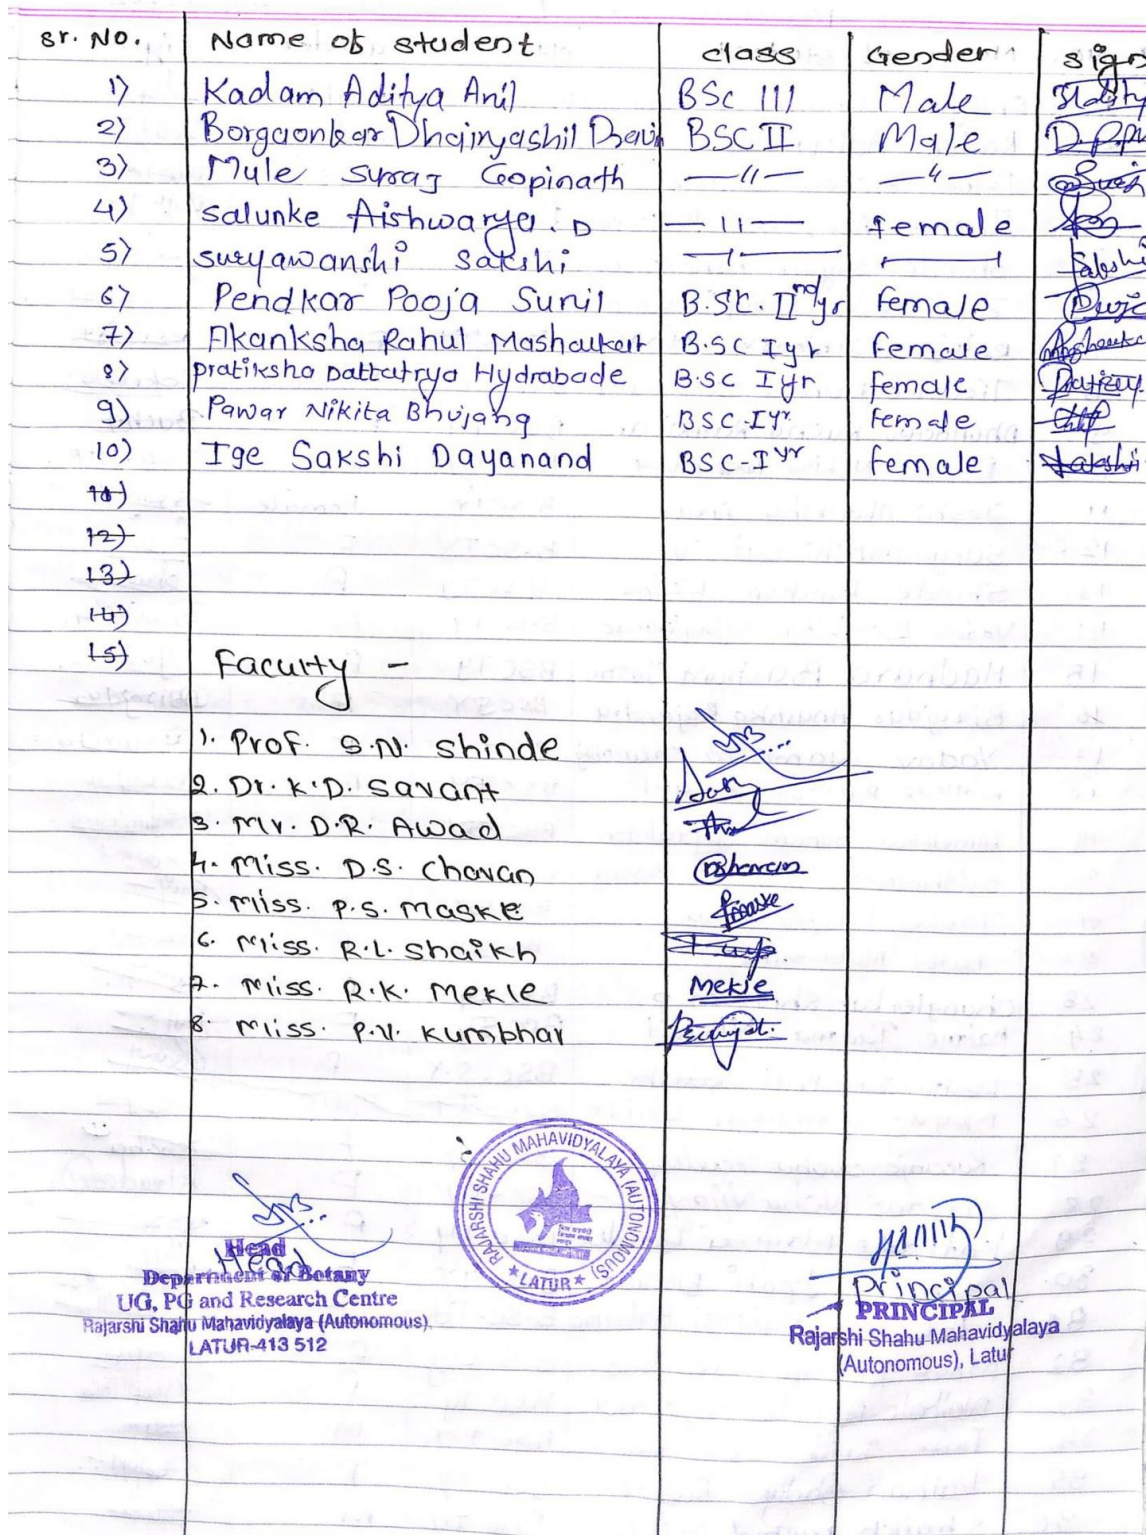 Sr. No. Name of student class Gender sign
1) Kadam Aditya Anil BSc III Male
2) Borgaonkar Dhairyashil BSC II Male
3) Mule Suraj Gopinath —〃— —〃—
4) Salunke Aishwarya. D —〃— female
5) suryawanshi Sakshi Sakshi
6) Pendkar Pooja Sunil B.SC. IInd yr female
7) Akanksha Rahul Mashalkar B.SC I yr female
8) pratiksha Dattatrya Hydrabade B.SC I yr female
9) Pawar Nikita Bhujang BSC-I yr female
10) Ige Sakshi Dayanand BSC-I yr female Sakshi
11)
12)
13)
14)
15)
Faculty -
1. Prof. S.N. shinde
2. Dr. K.D. Savant
3. Mr. D.R. Awad
4. Miss. D.S. Chavan
5. Miss. P.S. Maske
6. Miss. R.L. Shaikh
7. Miss. R.K. Mekle Mekle
8. Miss. P.V. Kumbhar
RAJARSHI SHAHU MAHAVIDYALAYA (AUTONOMOUS)
★ LATUR ★
Head
Head
Department of Botany
UG, PG and Research Centre
Rajarshi Shahu Mahavidyalaya (Autonomous)
LATUR-413 512
Principal
PRINCIPAL
Rajarshi Shahu Mahavidyalaya
(Autonomous), Latur